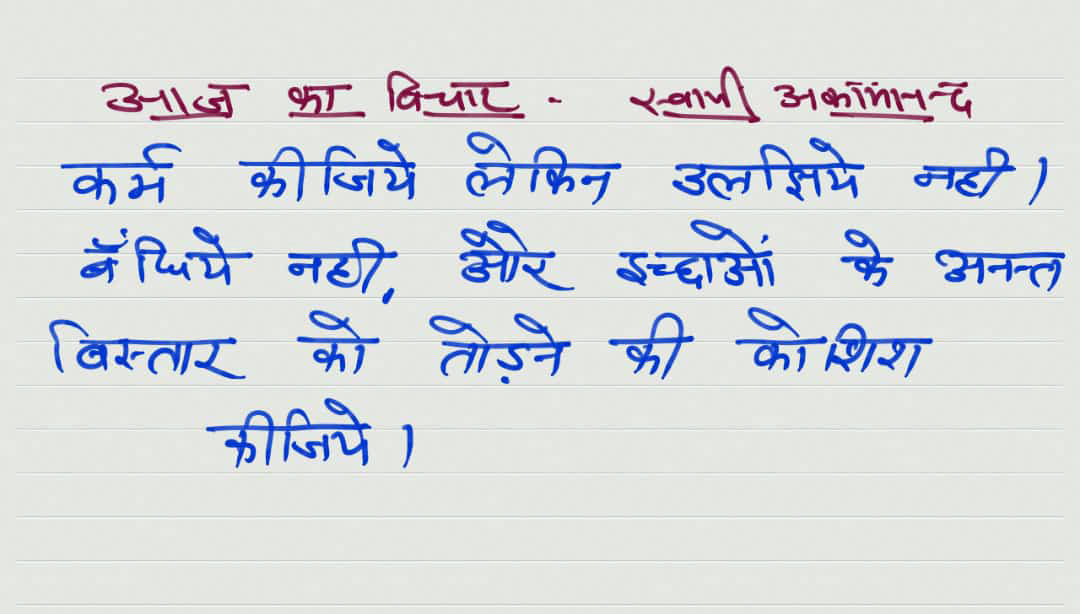 आज का विचार - स्वामी अकामानन्द
कर्म कीजिये लेकिन उलझिये नही।
बँधिये नही, और इच्छाओं के अनन्त
विस्तार को तोड़ने की कोशिश
कीजिये।